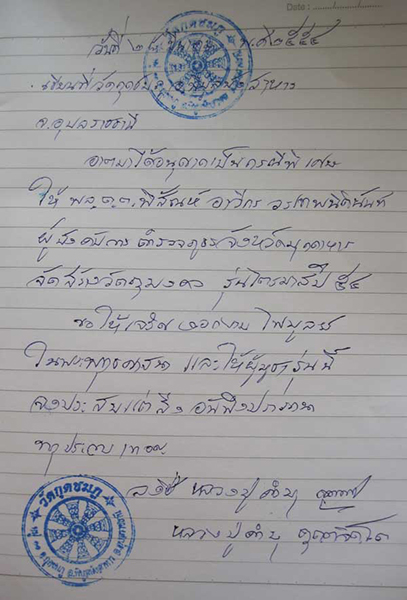 Date :
วันที่ ๒ พ.ศ. ๒๕๕๔
เขียนที่ วัดกุดชมภู
จ.อุบลราชธานี
อาตมาได้อนุญาตเป็นกรณีพิเศษ
ให้ พล.ต.ต. พิสัณห์
ผู้บังคับการตำรวจภูธรจังหวัดมุกดาหาร
จัดสร้างวัตถุมงคล รุ่นไตรมาสปี ๕๔
ขอให้เจริญงอกงาม ไพบูลย์
ในพระพุทธศาสนา และให้ผู้บูชารุ่นนี้
จงประสบแต่สิ่งอันพึงปรารถนา
ทุกประการ เทอญ
ลงชื่อ หลวงปู่คำบุ
หลวงปู่คำบุ คุตฺตจิตฺโต
วัดกุดชมภู